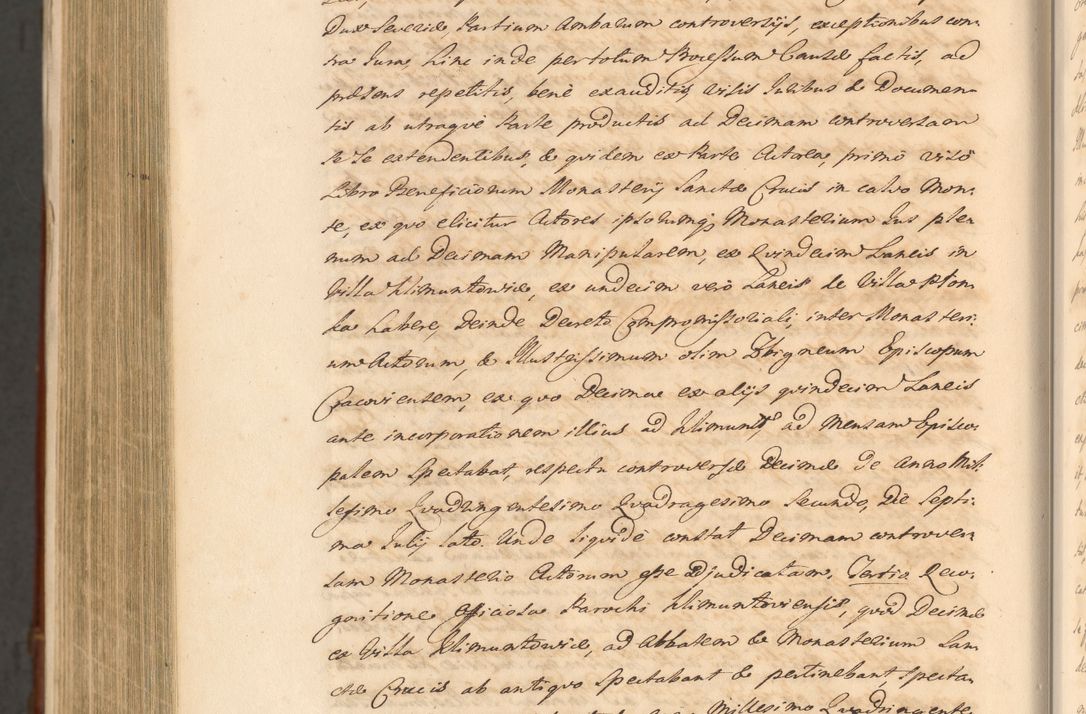 Duæ Severidæ, Partium Ambarum controversijs, exceptionibus con-
tra Jura, hinc inde per totum Processum Causæ factis, ad
præsens repetitis, benè exauditis, visis Juribus & Documen-
tis ab utraquè Parte productis ad Decimam controversam
se se extendentibus, & quidem ex Parte Actorea, primò viso
Libro Beneficiorum Monasterij Sanctæ Crucis in calvo Mon-
te, ex quo elicitur Actores ipsorumq; Monasterium Jus ple-
num ad Decimam Manipularem, ex Quindecim Laneis in
Villa Klimuntowice, ex undecim verò Laneis de Villa
ka habere, Deinde Decreto Compromissoriali, inter Monasteri-
um Actorum, & Illustrissimum olim Sbigneum Episcopum
Cracoviensem, ex quo Decimæ ex alijs quindecim Laneis
ante incorporationem illius ad Klimunt: ad Mensam Episco-
palem Spectabat, respectu controversæ Decimæ de Anno Mil-
lesimo Quadringentesimo Quadragesimo Secundo, Die Septi-
ma Julij lato. Unde liquidè constat Decimam controver-
sam Monasterio Actorum esse adjudicatam. Tertio Reco-
gnitione Officiosa Parochi Klimuntoviensis, quod Decimæ
ex Villa Klimuntowice, ad Abbatem & Monasterium San-
ctæ Crucis ab antiquo Spectabant & pertinebant Specta-
Millesimo Quadringente